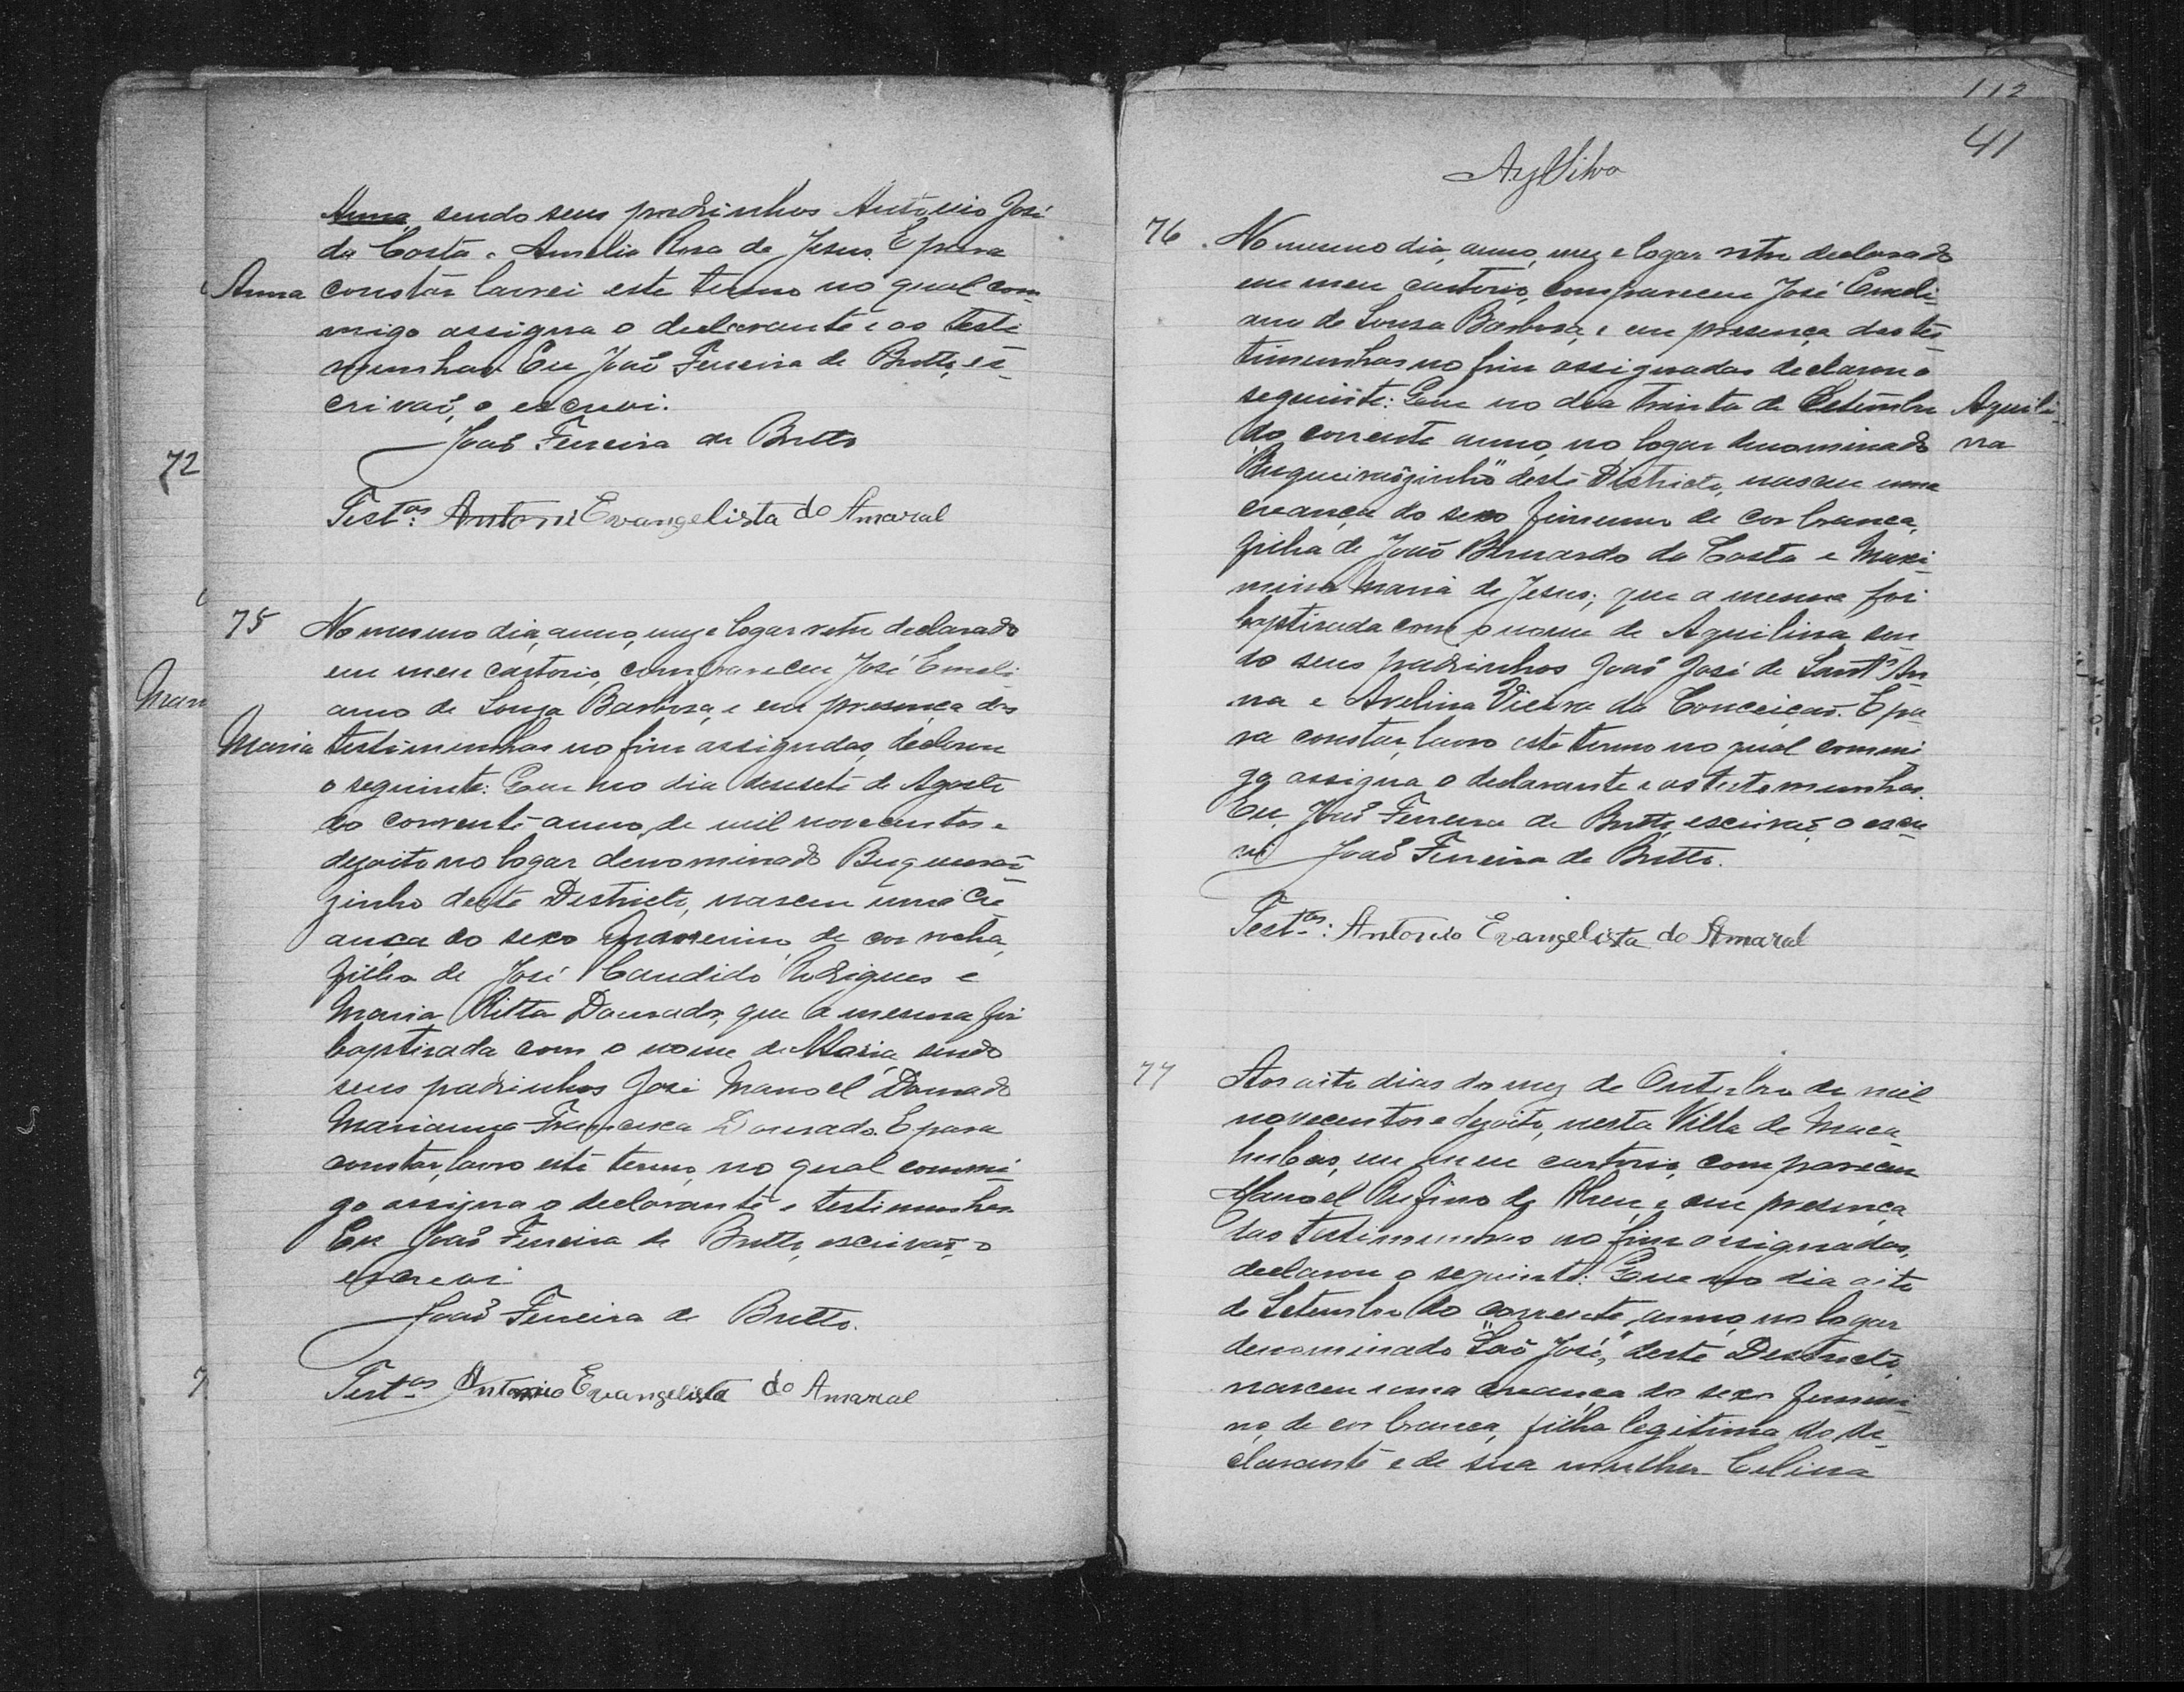 Anna, sendo seus padrinhos Antonio José
da Costa e Amelia Rosa de Jesus. E para
Anna
constar lavrei este termo no qual com-
migo assigna o declarante e as teste
munhas. Eu João Ferreira de Britto, es-
crivaõ, o escrevi.
João Ferreira de Britto
72
Test.as: Antoni Evangelista do Amaral
75
No mesmo dia, anno, mez e logar retro declarado
em meu cartorio, compareceu José Emili-
Man
ano de Souza Barbosa, e em presença das
Maria
testimunhas no fim assignadas, declarou
o seguinte: Que no dia desesete de Agosto
do corrente anno, de mil novecentos e
dezoito no logar denominado Buqueiraõ-
zinho deste Districto, nasceu uma Cre
ança do sexo femenino, de cor rocha,
filha de José Candido Rodrigues e
Maria Ritta Dourado, que a mesma foi
baptisada com o nome de Maria, sendo
seus padrinhos José Manoel Dourado
Marianna Francisca Dourado. E para
constar, lavro este termo, no qual commi-
go assigna o declarante e testimunhas.
Eu João Ferreira de Britto, escrivaõ, o
escrevi
João Ferreira de Britto.
7
Test.as Antonio Evangelista do Amaral
112
41
AySilva
76
No mesmo dia, anno, mez e logar retro declarado
em meu cartorio, compareceu José Emili-
ano de Sousa Barbosa, e em presença das tes-
timunhas no fim assignadas declarou o
seguinte: Que no dia trinta de Setembro
Aquili-
do corrente anno, no logar denominado
na
"Buqueiraõzinho" deste Districto, nasceu uma
creança do sexo feminino de cor branca,
filha de João Bernardo da Costa e Maxi-
mina Maria de Jesus; que a mesma foi
baptisada com o nome de Aquilina, sen
do seus padrinhos João José de Sant'An
na e Avelina Vieira da Conceiçaõ. E pa-
ra constar, lavro este termo no qual commi
go assigna o declarante e as testemunhas.
Eu, João Ferreira de Britto, escrivaõ, o escre
vi João Ferreira de Britto.
Test.as: Antonio Evangelista do Amaral
77
Aos oito dias do mez de Outubro de mil
novecentos e dezoito, nesta Villa de Maca-
hubas, em meu cartorio, compareceu
Manoel Rufino de Abreu, e em presença
das testimunhas no fim assignadas,
declarou o seguinte: Que no dia oito
de Setembro do corrente, anno, no logar
denominado "Saõ José," deste Districto,
nasceu uma creança do sexo femini-
no, de cor branca, filha legitima do de-
clarante e de sua mulher Celina